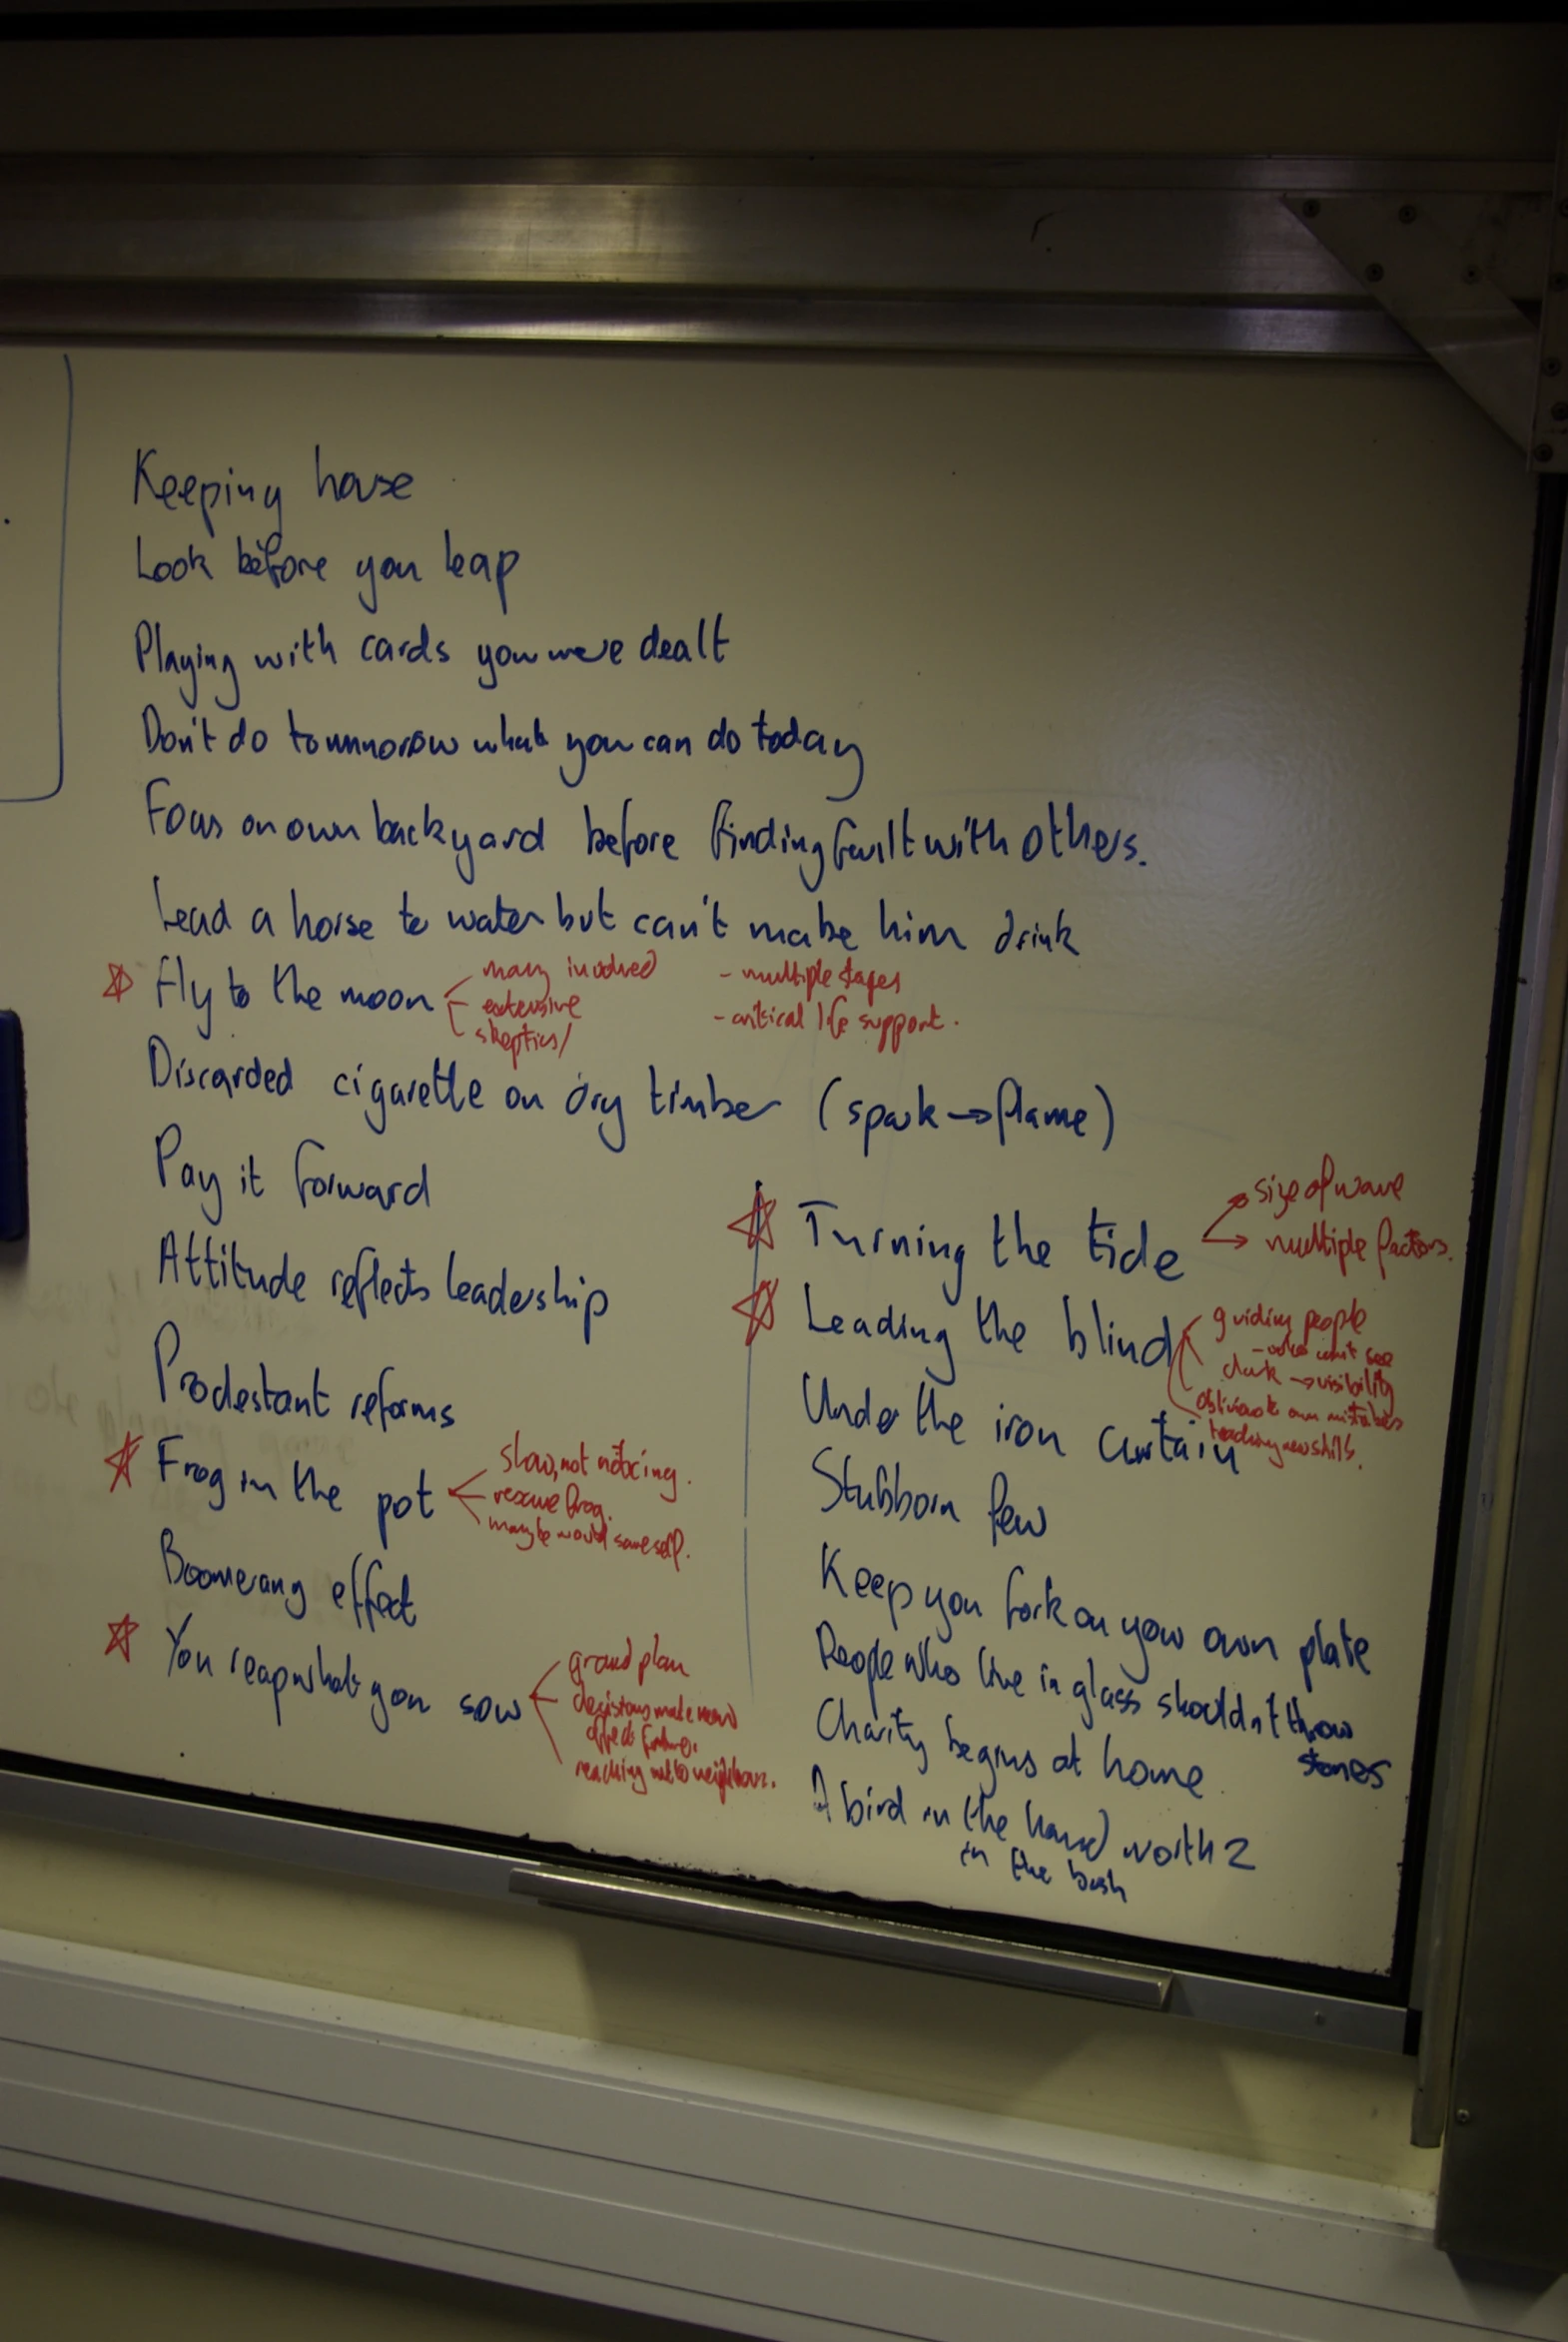 Keeping house
Look before you leap
Playing with cards you were dealt
Don't do tommorow what you can do today
Focus on own backyard before finding fault with others.
Lead a horse to water but can't make him drink
Fly to the moon
many involved
extensive
skeptics/
- multiple stages
- critical life support.
Discarded cigarette on dry timber (spark → flame)
Pay it forward
Attitude reflects leadership
Prodestant reforms
Frog in the pot
slow, not noticing.
rescue frog.
maybe would save self.
Boomerang effect
You reap what you sow
grand plan
decisions make now
affect future.
reaching out to neighbour.
Turning the tide
size of wave
multiple factors.
Leading the blind
guiding people
- who can't see
dark → visibility
oblivious to own mistakes
teaching new skills.
Under the iron curtain
Stubborn few
Keep you fork on your own plate
People who live in glass shouldn't throw
stones
Charity begins at home
A bird in the hand worth 2
in the bush